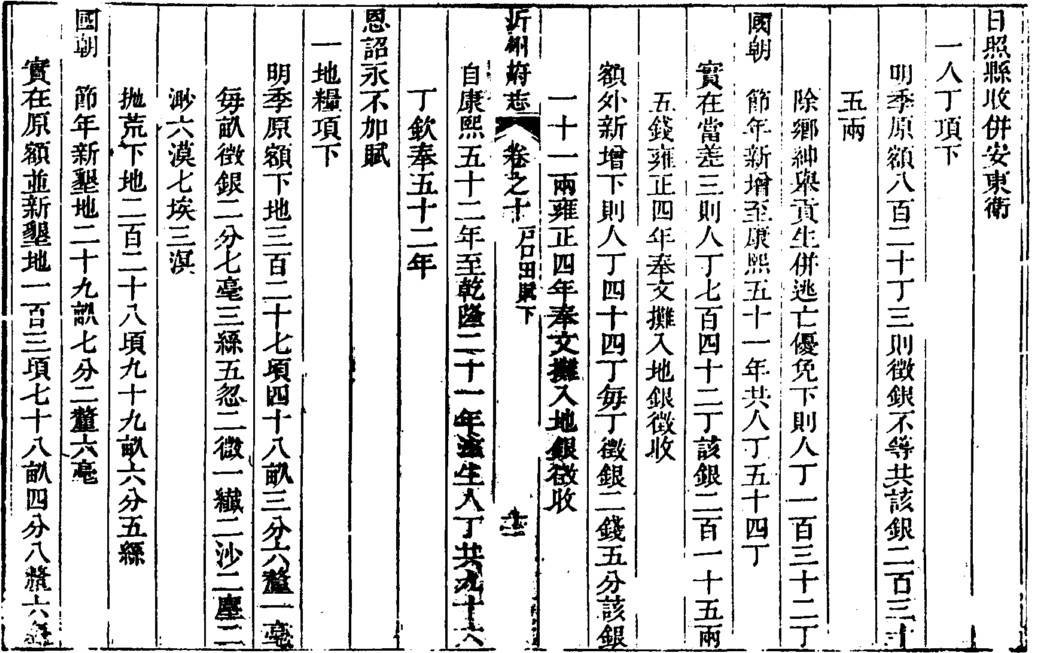 日照縣收併安東衛
一人丁項下
明季原額八百二十丁三則徵銀不等共該銀二百三十
五兩
除鄉紳舉貢生併逃亡優免下則人丁一百三十二丁
國朝　節年新增至康熙五十一年共人丁五十四丁
實在當差三則人丁七百四十二丁該銀二百一十五兩
五錢雍正四年奉文攤入地銀徵收
額外新增下則人丁四十四丁每丁徵銀二錢五分該銀
一十一兩雍正四年奉文攤入地銀徵收
沂州府志　卷之十　戶口田賦下
自康熙五十二年至乾隆二十一年滋生人丁共九十六
丁欽奉五十二年
恩詔永不加賦
一地糧項下
明季原額下地三百二十七頃四十八畝三分六釐一毫
每畝徵銀二分七毫三絲五忽二微一纖二沙二塵二
渺六漠七埃三溟
拋荒下地二百二十八頃九十九畝六分五絲
國朝　節年新墾地二十九畝七分二釐六毫
實在原額並新墾地一百三頃七十八畝四分八釐六毫